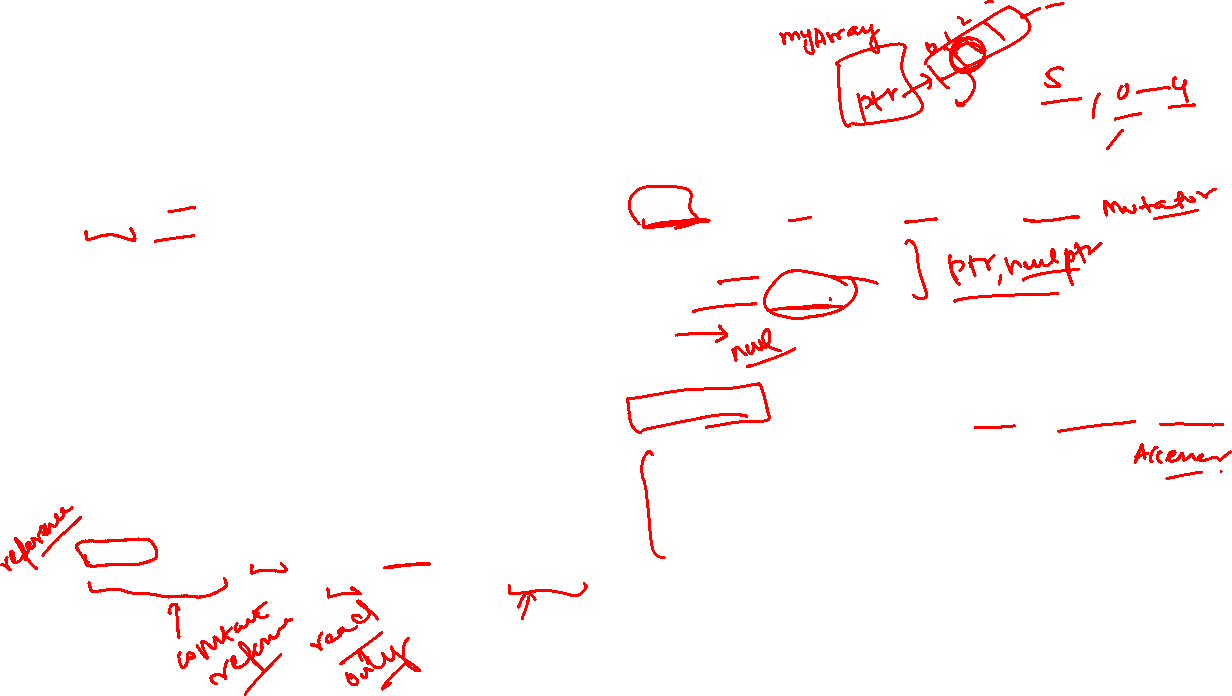 myArray
0 1 2
ptr
5, 0—4
Mutator
ptr, nullptr
null
Accessor
reference
constant
reference
read
only